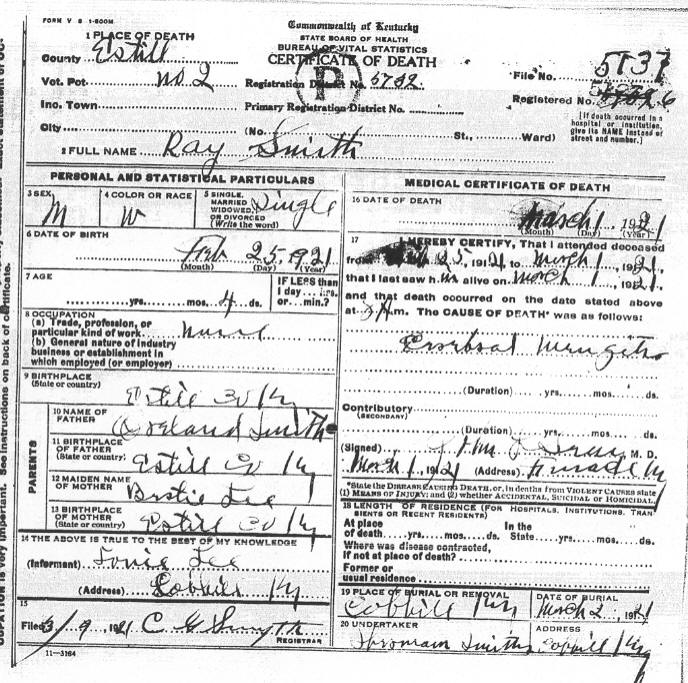 FORM V S 1-500M
Commonwealth of Kentucky
STATE BOARD OF HEALTH
BUREAU OF VITAL STATISTICS
CERTIFICATE OF DEATH
1 PLACE OF DEATH
County Estill
Vot. Pct. No 2
Registration District No. 5732
File No. 5737
Inc. Town
Primary Registration District No.
Registered No. 6
City
(No. St., Ward)
[If death occurred in a hospital or institution, give its NAME instead of street and number.]
2 FULL NAME Ray Smith
P
PERSONAL AND STATISTICAL PARTICULARS
3 SEX M
4 COLOR OR RACE W
5 SINGLE, MARRIED WIDOWED, OR DIVORCED (Write the word) Single
6 DATE OF BIRTH
Feb 25 1921
(Month) (Day) (Year)
7 AGE
yrs. mos. 4 ds.
IF LESS than 1 day hrs. or min.?
8 OCCUPATION
(a) Trade, profession, or particular kind of work
(b) General nature of industry business or establishment in which employed (or employer)
9 BIRTHPLACE
(State or country) Estill Co Ky
PARENTS
10 NAME OF FATHER Smith
11 BIRTHPLACE OF FATHER (State or country) Estill Co Ky
12 MAIDEN NAME OF MOTHER Lee
13 BIRTHPLACE OF MOTHER (State or country) Estill Co Ky
14 THE ABOVE IS TRUE TO THE BEST OF MY KNOWLEDGE
(Informant) Lee
(Address) Cobhill Ky
15
Filed 3/9, 1921 C G Smyth
REGISTRAR
11-3164
MEDICAL CERTIFICATE OF DEATH
16 DATE OF DEATH
March 1 1921
(Month) (Day) (Year)
17 I HEREBY CERTIFY, That I attended deceased
from 25, 1921 to March 1, 1921,
that I last saw him alive on March 1, 1921,
and that death occurred on the date stated above
at m. The CAUSE OF DEATH* was as follows:
(Duration) yrs. mos. ds.
Contributory
(SECONDARY)
(Duration) yrs. mos. ds.
(Signed) M. D.
March 1, 1921 (Address) Ky
*State the DISEASE CAUSING DEATH, or, in deaths from VIOLENT CAUSES state
(1) MEANS OF INJURY; and (2) whether ACCIDENTAL, SUICIDAL or HOMICIDAL.
18 LENGTH OF RESIDENCE (FOR HOSPITALS, INSTITUTIONS, TRANSIENTS OR RECENT RESIDENTS)
At place of death yrs. mos. ds. In the State yrs. mos. ds.
Where was disease contracted,
if not at place of death?
Former or
usual residence
19 PLACE OF BURIAL OR REMOVAL
Cobhill Ky
DATE OF BURIAL
March 2, 1921
20 UNDERTAKER
Smith
ADDRESS
Cobhill Ky
See instructions on back of certificate.